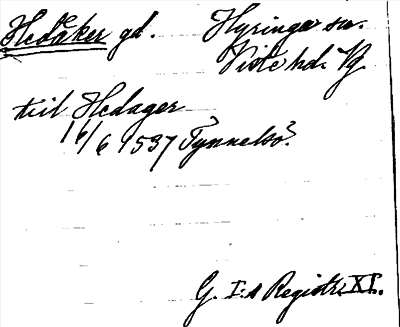 Hedåker gd. Hyringa sn.
Viste hd. Vg.
till Hedager
16/6 1537 Tynnelsö?
G. I:s Registr. XI.